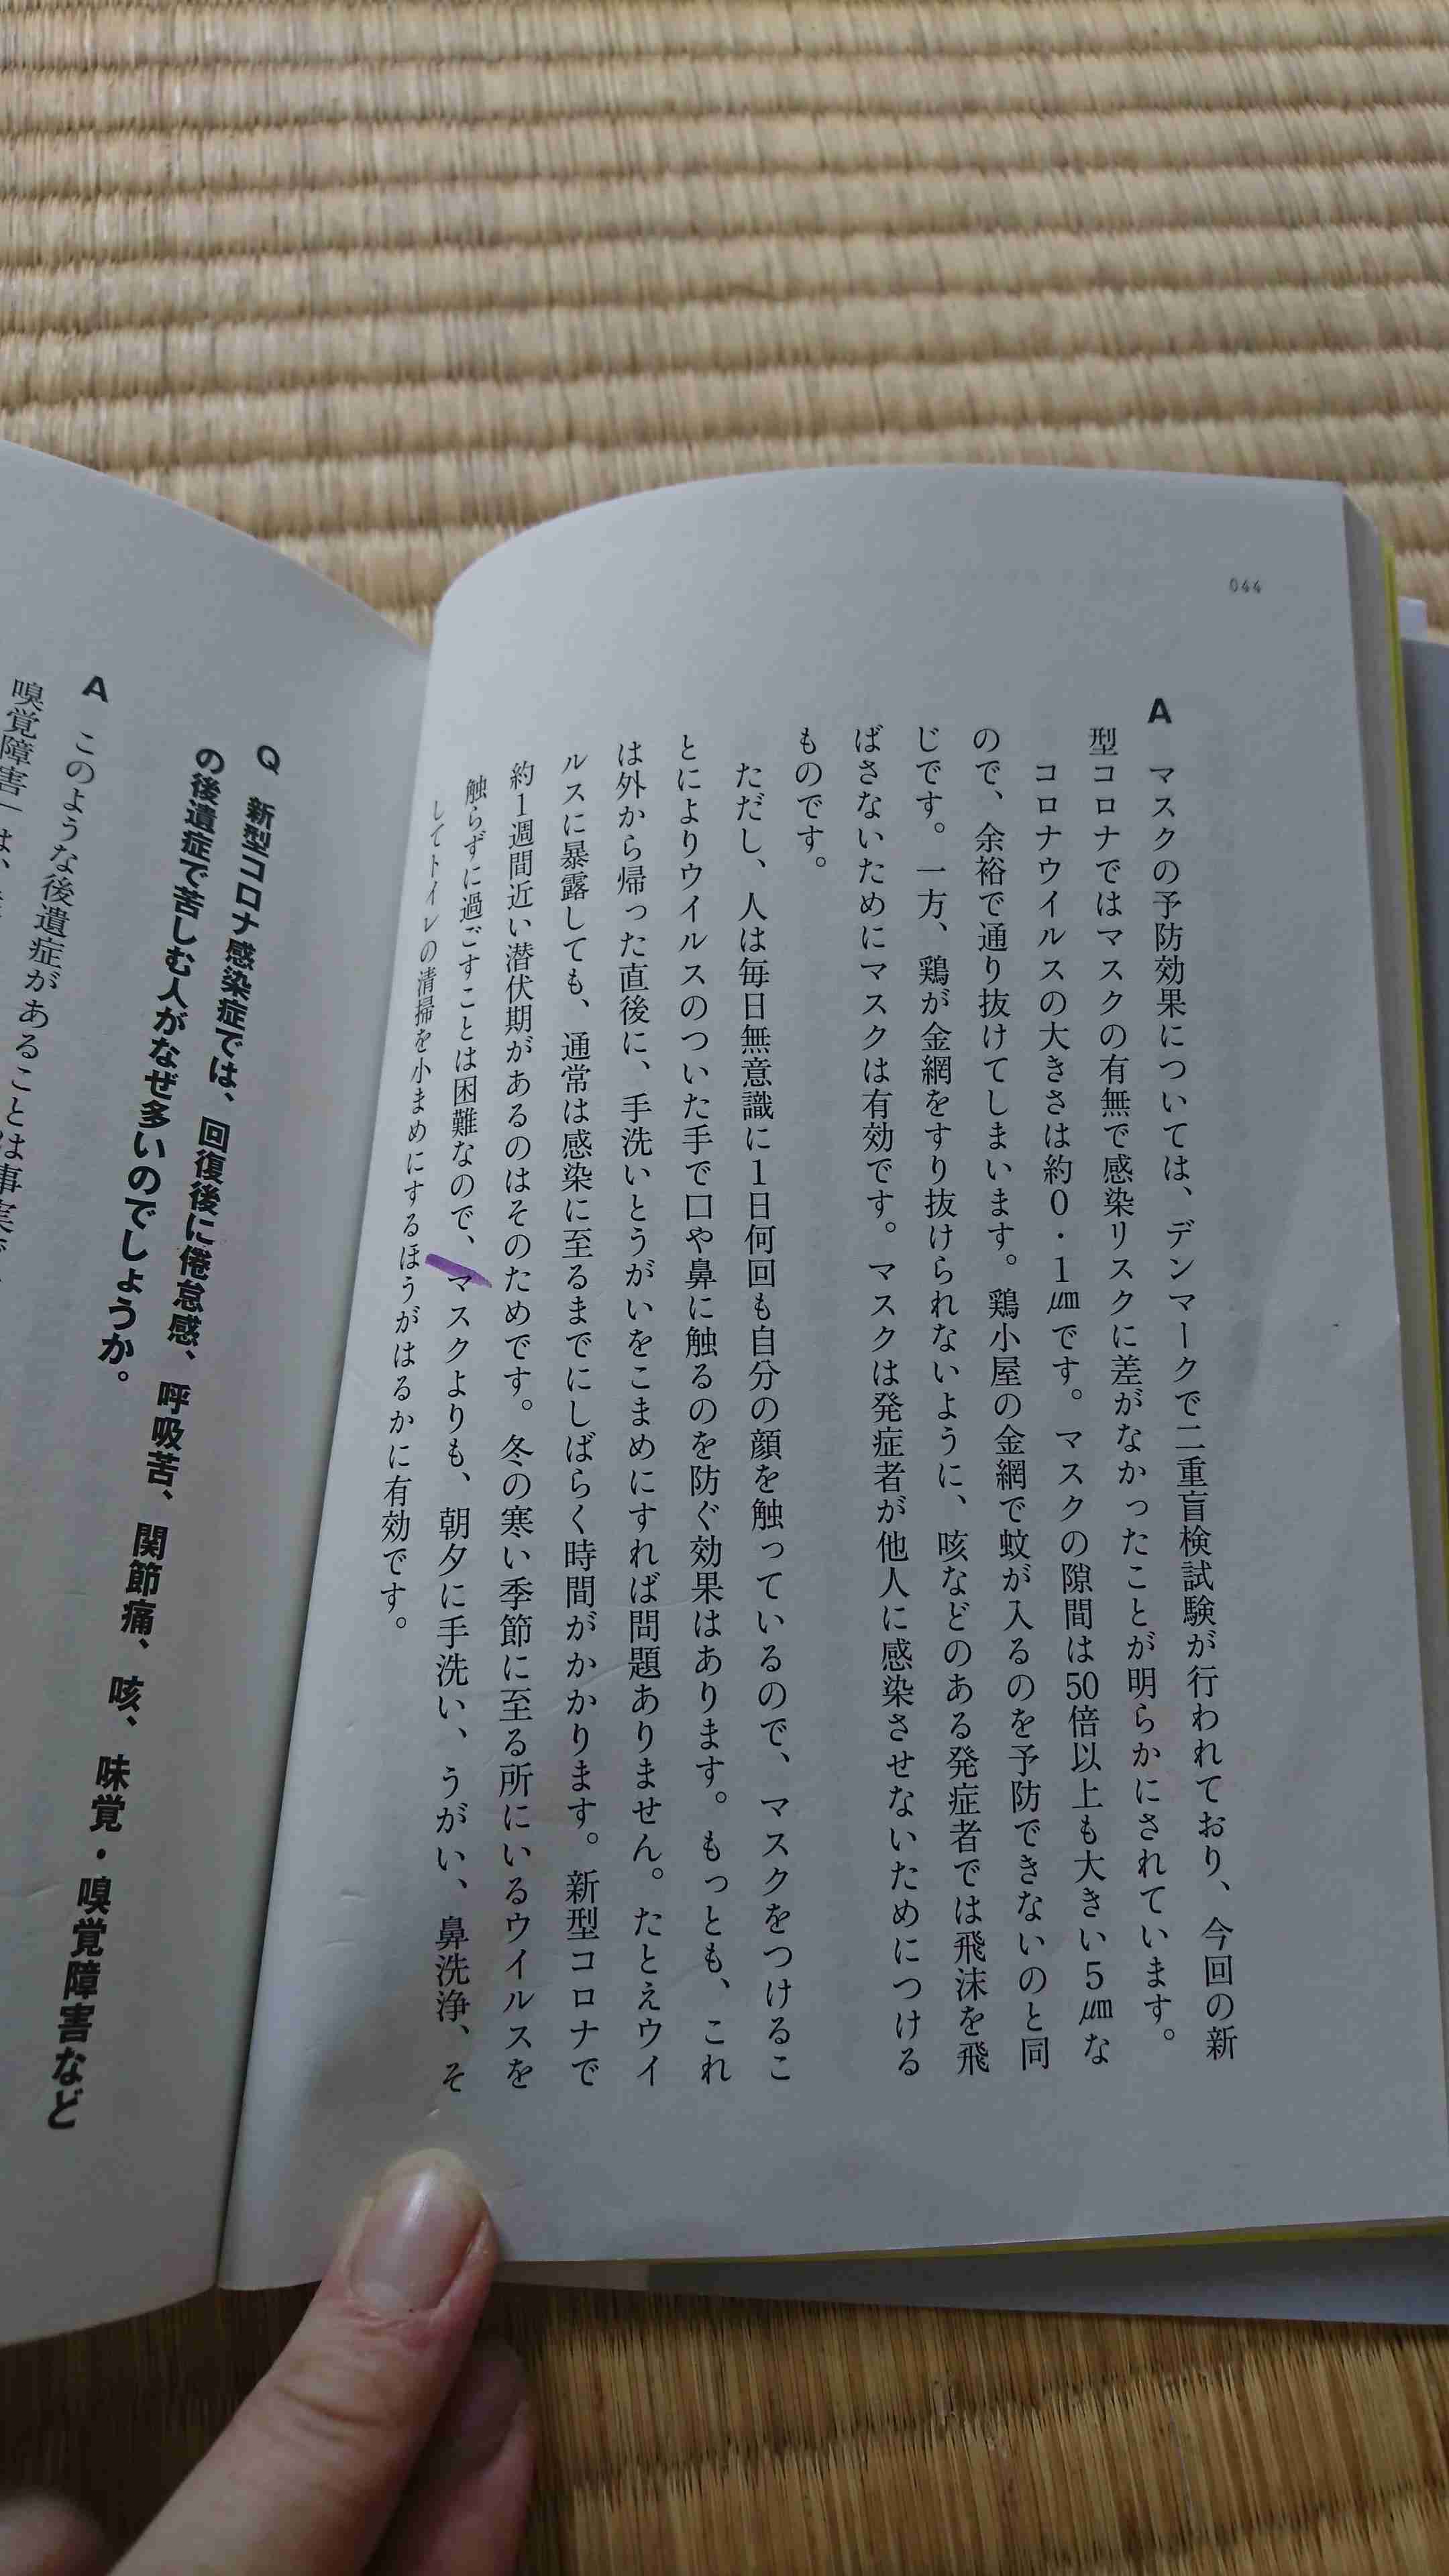 044
A マスクの予防効果については、デンマークで二重盲検試験が行われており、今回の新
型コロナではマスクの有無で感染リスクに差がなかったことが明らかにされています。
コロナウイルスの大きさは約0・1㎛です。マスクの隙間は50倍以上も大きい5㎛な
ので、余裕で通り抜けてしまいます。鶏小屋の金網で蚊が入るのを予防できないのと同
じです。一方、鶏が金網をすり抜けられないように、咳などのある発症者では飛沫を飛
ばさないためにマスクは有効です。マスクは発症者が他人に感染させないためにつける
ものです。
ただし、人は毎日無意識に1日何回も自分の顔を触っているので、マスクをつけるこ
とによりウイルスのついた手で口や鼻に触るのを防ぐ効果はあります。もっとも、これ
は外から帰った直後に、手洗いとうがいをこまめにすれば問題ありません。たとえウイ
ルスに暴露しても、通常は感染に至るまでにしばらく時間がかかります。新型コロナで
約1週間近い潜伏期があるのはそのためです。冬の寒い季節に至る所にいるウイルスを
触らずに過ごすことは困難なので、マスクよりも、朝夕に手洗い、うがい、鼻洗浄、そ
してトイレの清掃を小まめにするほうがはるかに有効です。
Q 新型コロナ感染症では、回復後に倦怠感、呼吸苦、関節痛、咳、味覚・嗅覚障害など
の後遺症で苦しむ人がなぜ多いのでしょうか。
A このような後遺症があることは事実
嗅覚障害